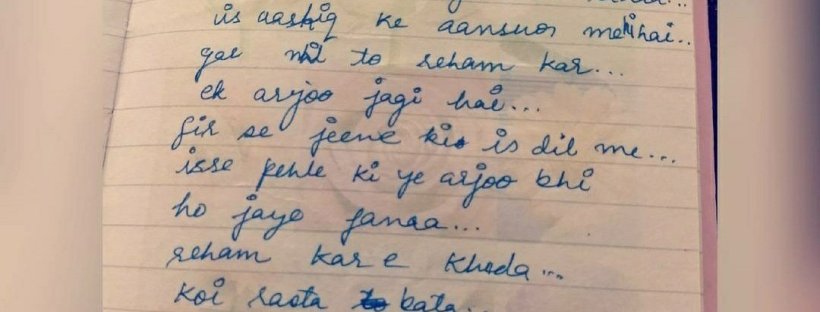 is aashiq ke aansuoi mehi hai..
to reham kar...
ek arjoo jagi hai...
fir se jeene ki is dil me...
isse pehle ki ye arjoo bhi
ho jaye fanaa...
reham kar e khuda...
koi rasta bata...